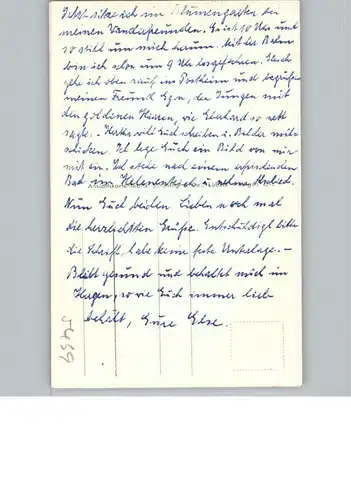 Jetzt sitze ich im Blumengarten bei
meinen Wandersfreunden. Es ist 10 Uhr und
so still um mich herum. Mit der Bahn
bin ich schon um 9 Uhr losgefahren. Nach
gehe ich oben rauf ins Postheim und begrüße
meinen Freund Egon, den Jungen mit
den goldenen Haaren, wie Eberhard so nett
sagte. Hertha will Euch schreiben u. Bilder mit
schicken. Ich lege Euch ein Bild von mir
mit ein. Ich stehe nach einem erfrischenden
Bad im u. nehme Abschied
Nun Euch beiden Lieben noch mal
die herzlichsten Grüße. Entschuldigt bitte
die Schrift, habe keine feste Unterlage. -
Bleibt gesund und behaltet mich im
Herzen, so wie Euch immer lieb
behält, Eure Else.
5439